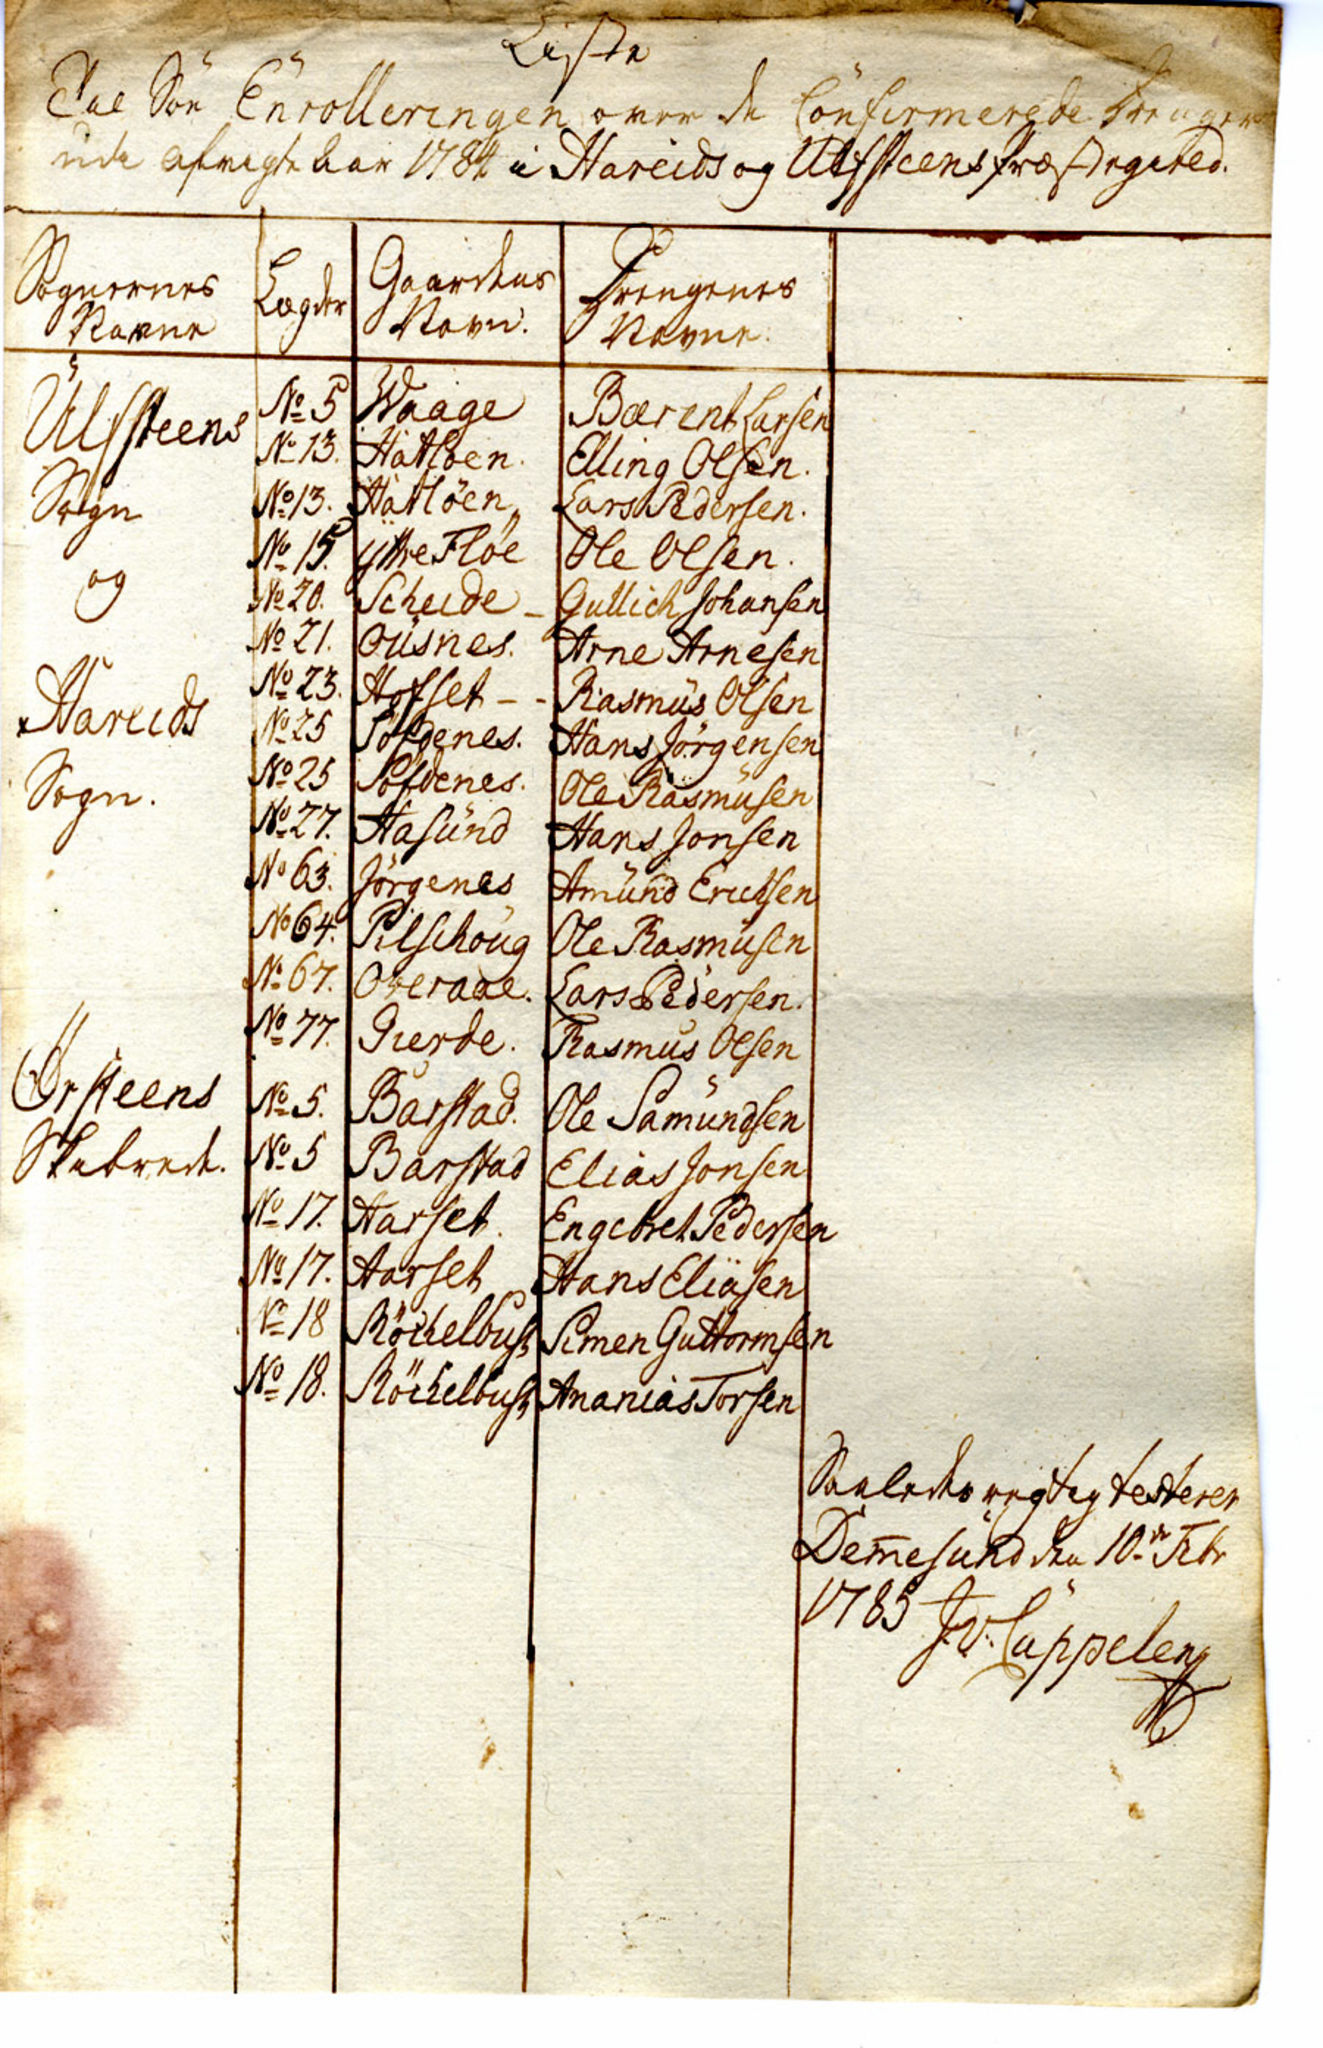 Liste
Til Söe Enrolleringen over de Confirmerede Drenger
udi afvigte Aar 1784 i Hareids og Ulfsteens Præstegield.
Sognernes Navne Lægder Gaardens Navn. Drengenes Navne.
Ulfsteens No 5 Waage Bærent Larsen
No 13. Hatlöen. Elling Olsen.
Sogn No 13. Hatlöen Lars Pedersen.
No 15. Yttre Flöe Ole Olsen.
og No 20. Scheide - Gullich Johansen
No 21. Ousnes. Arne Arnesen
Hareids No 23. Hofset - - Rasmus Olsen
No 25 Söfdenes. Hans Jörgensen
Sogn. No 25 Söfdenes. Ole Rasmusen
No 27. Hasund Hans Jonsen
No 63. Jörgenes Amund Ericksen
No 64. Pilschoug Ole Rasmusen
No 67. Overaae. Lars Pedersen.
No 77. Gierde. Rasmus Olsen
Ørsteens No 5. Barstad. Ole Samundsen
Skibrede. No 5 Barstad Elias Jonsen
No 17. Aarset. Engebret Pedersen
No 17. Aarset Hans Eliasen
No 18 Röchelbust Simen Guttormsen
No 18. Röchelbust Ananias Torsen
Saaledes rigtig testerer
Dem̄esund den 10de Febr
1785 J. v. Cappelen